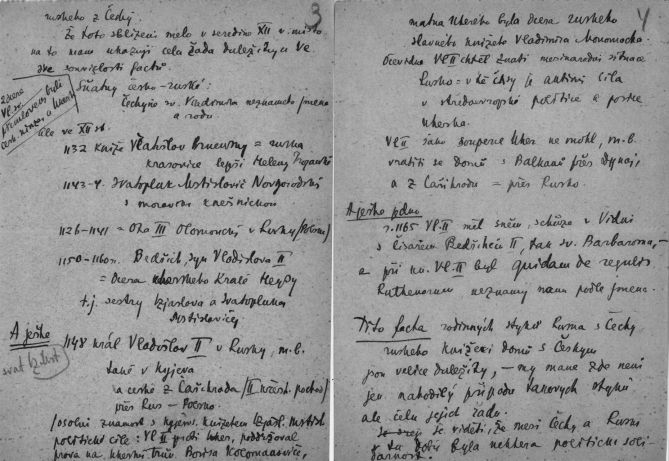 3
ruského z Čechy
Že toto sblížení mělo v seredině XII v. místo
na to nam ukazují cela řada důležitých ve
své souvislosti faktů.
Sňatky česko-ruské:
Čechyně sv. Vladimira neznameho jmena
a rodu.
ale ve XII st.
1132 Kníže Vlatislav Brnensky = ruska
krasavice lepší Heleny Trojanské
1143-4. Svatopluk Mstislavič Novgorodský
s moravskou kněžničkou
1126-1141 = Ota III Olomoucký v Rusku
1150-1160. Bedřich, syn Vladislava II
= Dcera uherského Krale Heyzy
t.j. sestry Izjaslava a Svatopluka
Mstislavičů
A ještě
1148 král Vladislav II v Rusku, m.b.
také v Kyjeva
na cestě z Cařihrada /II křížát. pochod/
přes Rus –
svat Izdat
/osobní znamost s kyjevs. knížetem Izjasl. Mstisl.
politické cíle: Vl II proti Uher, podržoval
prova na uherský trůn. Borisa Kolomanoviče,
4
matna kterého byla dcera ruského
slavného knížeta Vladimira Monomacha.
Očevidno Vl II chtěl znati mezinarodní situace
Rusko = v té čásy je aktivní cíla
v středoevropské politice a
uherska.
Vl II jako soupeře Uher ne mohl, m.b.
vratiti se domů s Balkanů přes Dunaj,
a z Cařihradu = přes Rusko.
A ještě jedno
r. 1165 Vl. II měl sněm, schůze v Vidni
s císařem Bedřichem II, tak zv. Barbarossa, –
a při kn. Vl. II byl quidam de regulis
Ruthenorum neznamy nam podle jmena.
Tito facta rodinných styků Rusma s Čechy
ruského knížecí domů s Českým
jsou velice důležity, – my mame zde není
jen nahodilý případů takových styků
ale celu jejich řadu.
se videti, že mezi Čechy, a Rusmi
v tu dobu byla nektera politicka soli-
darnost.